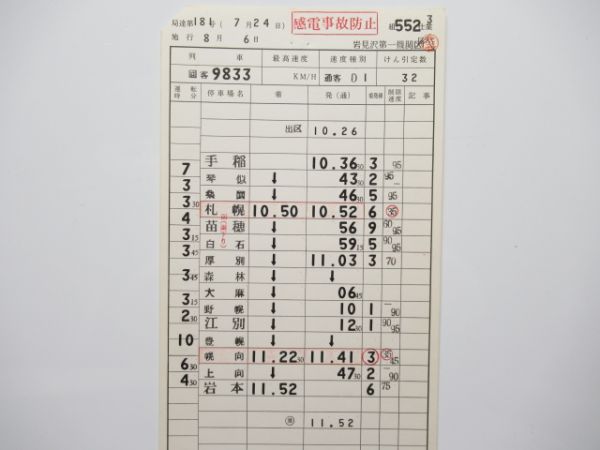 局達第181号 ( 7月24日 ) 感電事故防止 組552
施行 8月 6日 岩見沢第一機関区
列車 最高速度 速度種別 けん引定数
9833 KM/H 通客 D1 32
運転時分 停車場名 着 発(通) 着発線 制限速度 記事
出区 10.26
手稲 10.36 30 3 95
7 琴似 ↓ 43 30 2 95
3 桑園 ↓ 46 30 5 95
3 30 札幌 10.50 10.52 6 35
4 苗穂 ↓ 56 9 60 95
3 15 白石 ↓ 59 15 5 90 95
3 45 厚別 ↓ 11.03 3 70
森林 ↓ ↓
3 45 大麻 ↓ 06 45
3 15 野幌 ↓ 10 1 90
2 30 江別 ↓ 12 30 1 90 95
豊幌 ↓ ↓
10 幌向 11.22 30 11.41 3 35 45
6 30 上向 ↓ 47 30 2 90
4 30 岩本 11.52 6 75
11.52